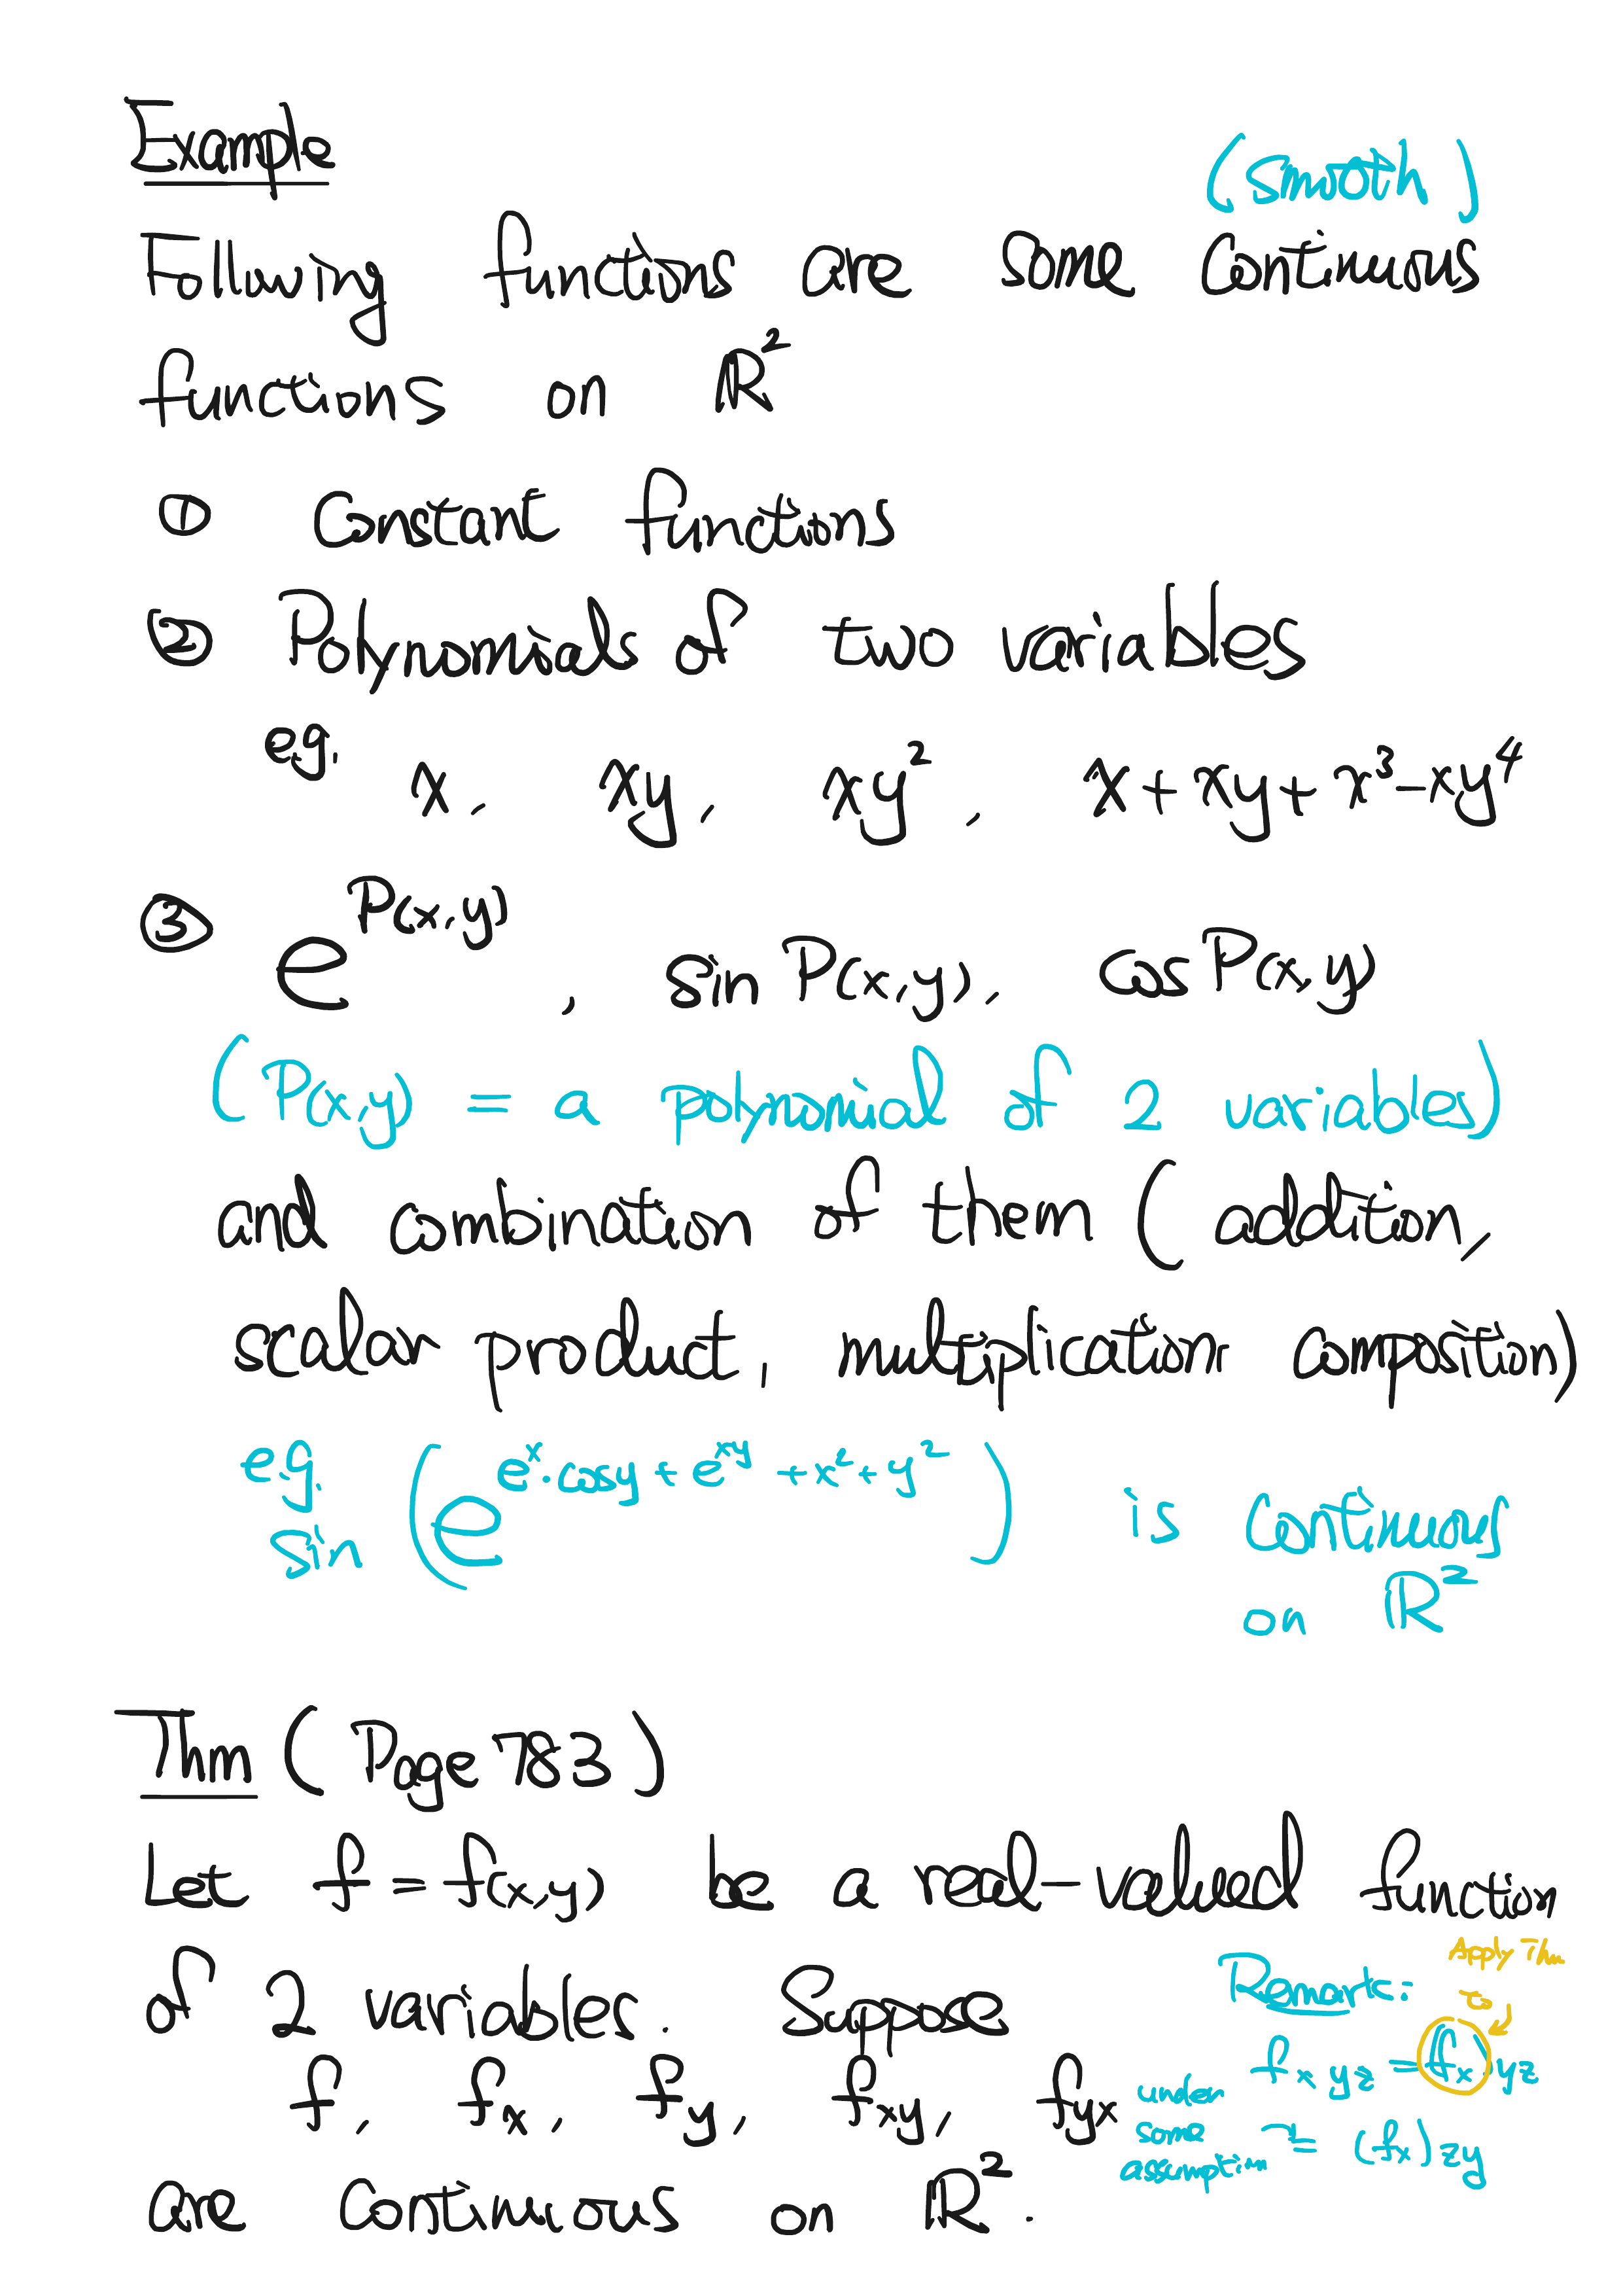 Example
(smooth)
Following functions are some continuous
functions on ℝ²
① Constant functions
② Polynomials of two variables
e.g. x, xy, xy², x+xy+x³-xy⁴
③ e^{P(x,y)}, sin P(x,y), cos P(x,y)
(P(x,y) = a polynomial of 2 variables)
and combination of them (addition,
scalar product, multiplication, composition)
e.g.
sin (e^{e^x·cosy + e^{xy} + x² + y²}) is continuous
on ℝ²
Thm (Page 783)
Let f = f(x,y) be a real-valued function
of 2 variables. Suppose
f, f_x, f_y, f_{xy}, f_{yx}
are continuous on ℝ².
Remark:
Apply Thm
to
f_{xyz} = (f_x)_{yz}
under
some
assumption = (f_x)_{zy}